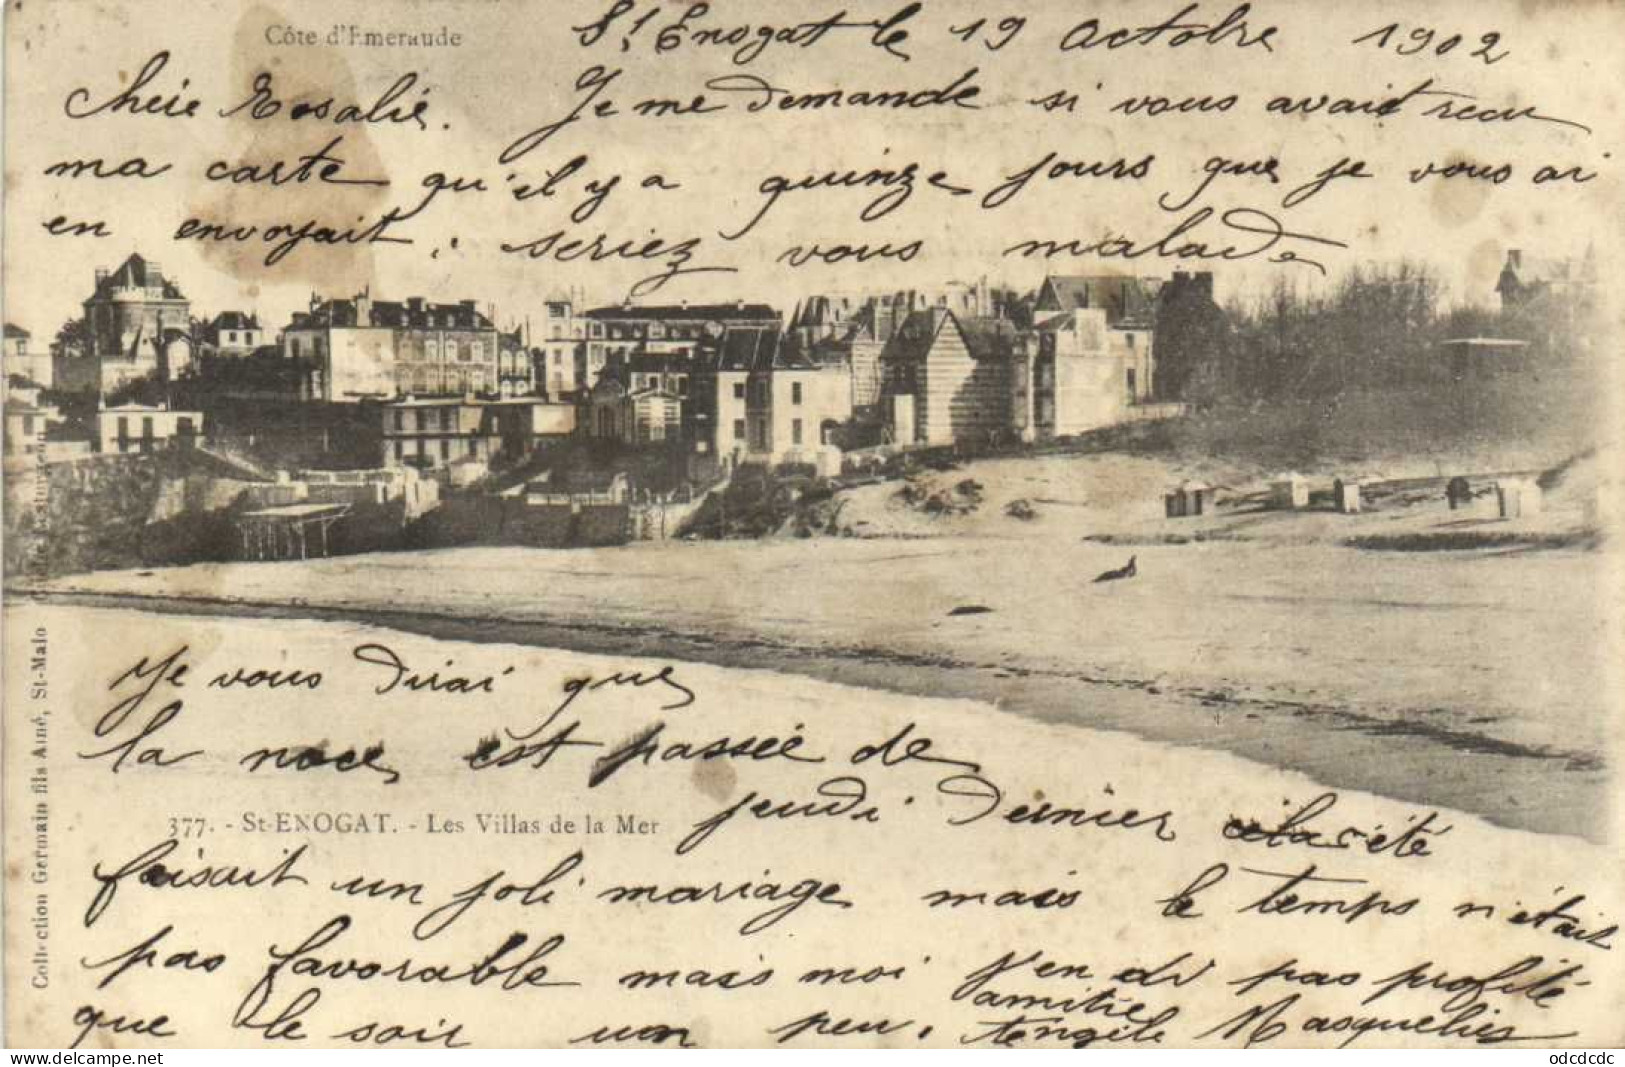 Côte d'Emeraude
St Enogat le 19 Octobre 1902
Cheie Rosalie. Je me demande si vous avait recu
ma carte qu'il y a quinze jours que je vous ai
en envoyait. seriez vous malade
Je vous dirai que
la noce est passée de
jeudi dernier
377. - St-ENOGAT. - Les Villas de la Mer
cela été
faisait un joli mariage mais le temps n'était
pas favorable mais moi j'en di pas profité
que le soir un peu. amitié
Masquelier
Collection Germain fils Aîné, St-Malo
odcdcdc